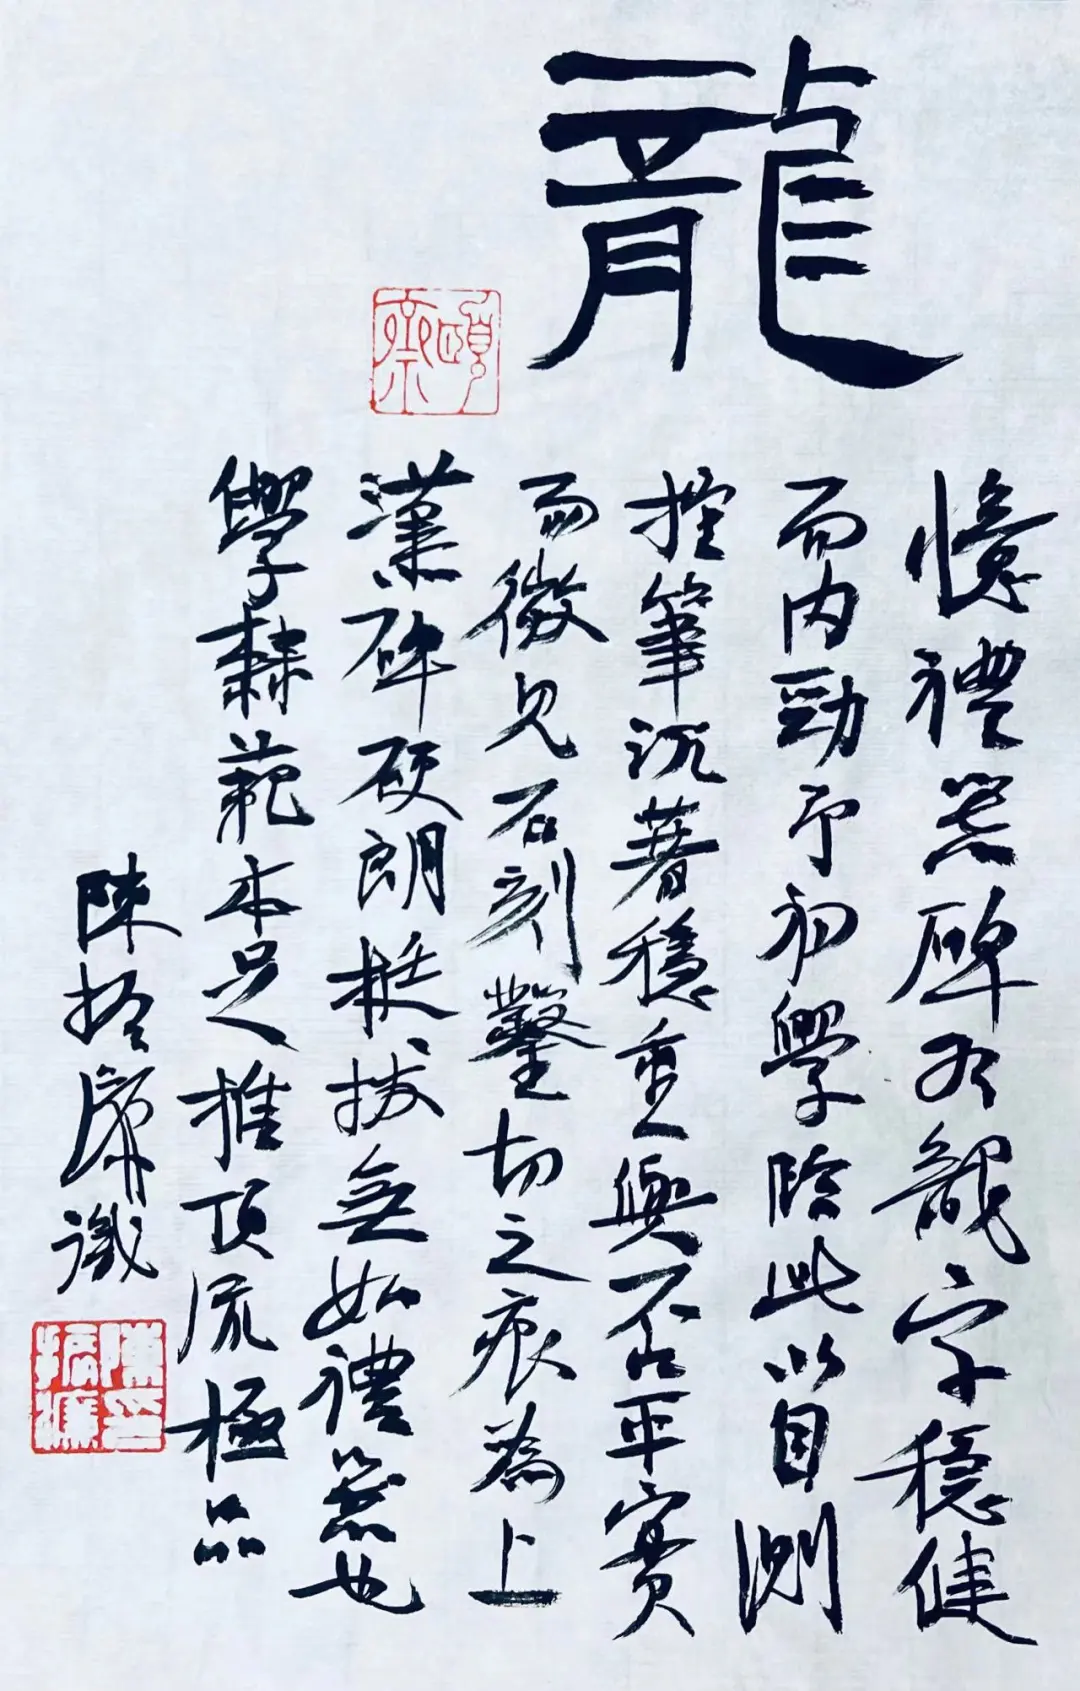 龍
頤齋
憶禮器碑有龍字穩健
而内勁予初學臨此以自測
控筆沉著穩重與否平實
而微見石刻鑿切之痕為上
漢碑硬朗挺拔無如禮器也
學隸範本足推頂流極品
陳振廉識
陳印振濂